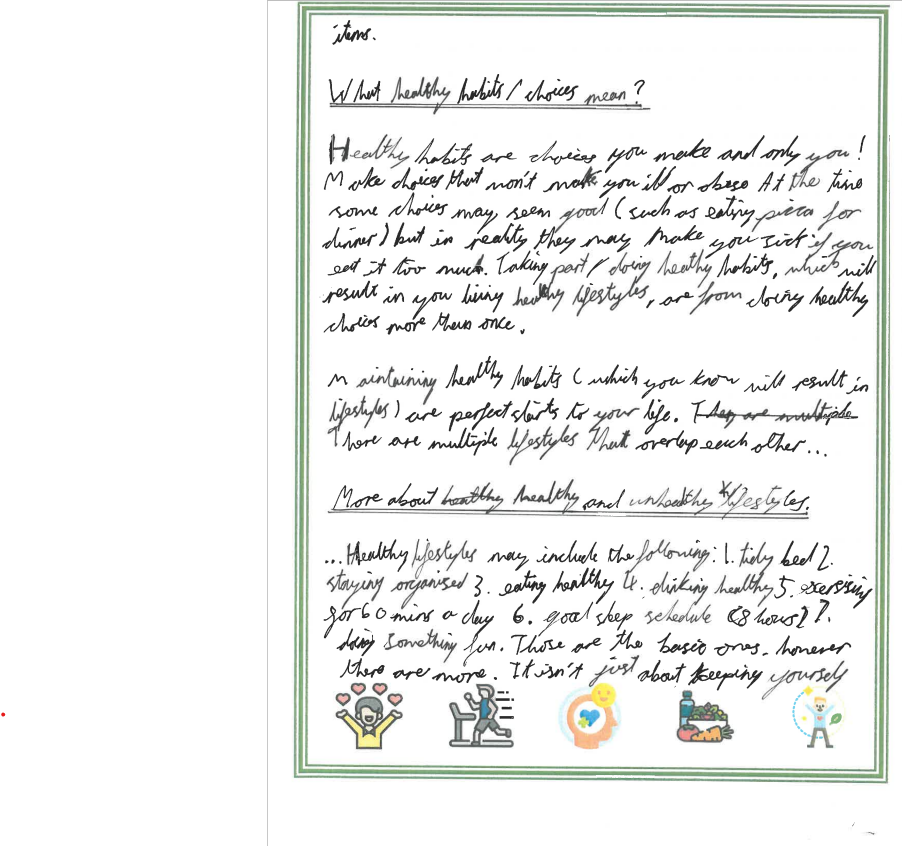 items.
What healthy habits / choices mean?
Healthy habits are choices you make and only you!
Make choices that won't make you ill or obese At the time
some choices may seem good (such as eating pizza for
dinner) but in reality they may make you sick if you
eat it too much. Taking part / doing healthy habits, which will
result in you living healthy lifestyles, are from doing healthy
choices more than once.
Maintaining healthy habits (which you know will result in
lifestyles) are perfect starts to your life. They are multiple
There are multiple lifestyles that overlap each other...
More about healthy healthy and unhealthy lifestyles.
...Healthy lifestyles may include the following: 1. tidy bed 2.
staying organised 3. eating healthy 4. drinking healthy 5. exersising
for 60 mins a day 6. good sleep schedule (8 hours) 7.
doing something fun. Those are the basic ones. however
there are more. It isn't just about keeping yourself